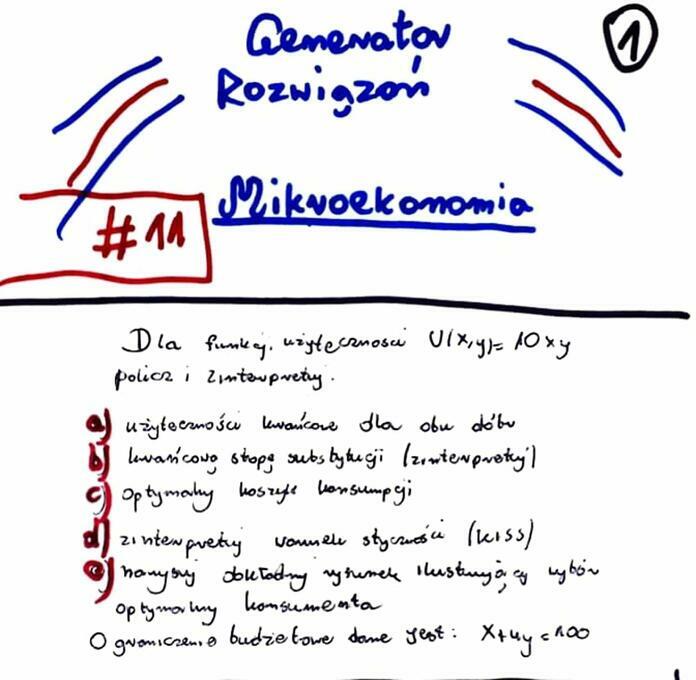 Generator
Rozwiązań
1
Mikroekonomia
#11
Dla funkcji użyteczności U(x,y)= 10xy
policz i zinterpretuj.
a) użyteczności krańcowe dla obu dóbr
b) krańcową stopę substytucji (zinterpretuj)
c) optymalny koszyk konsumpcji
d) zinterpretuj warunek styczności (KISS)
e) narysuj dokładny rysunek ilustrujący wybór
optymalny konsumenta
Ograniczenie budżetowe dane jest: x+4y=100